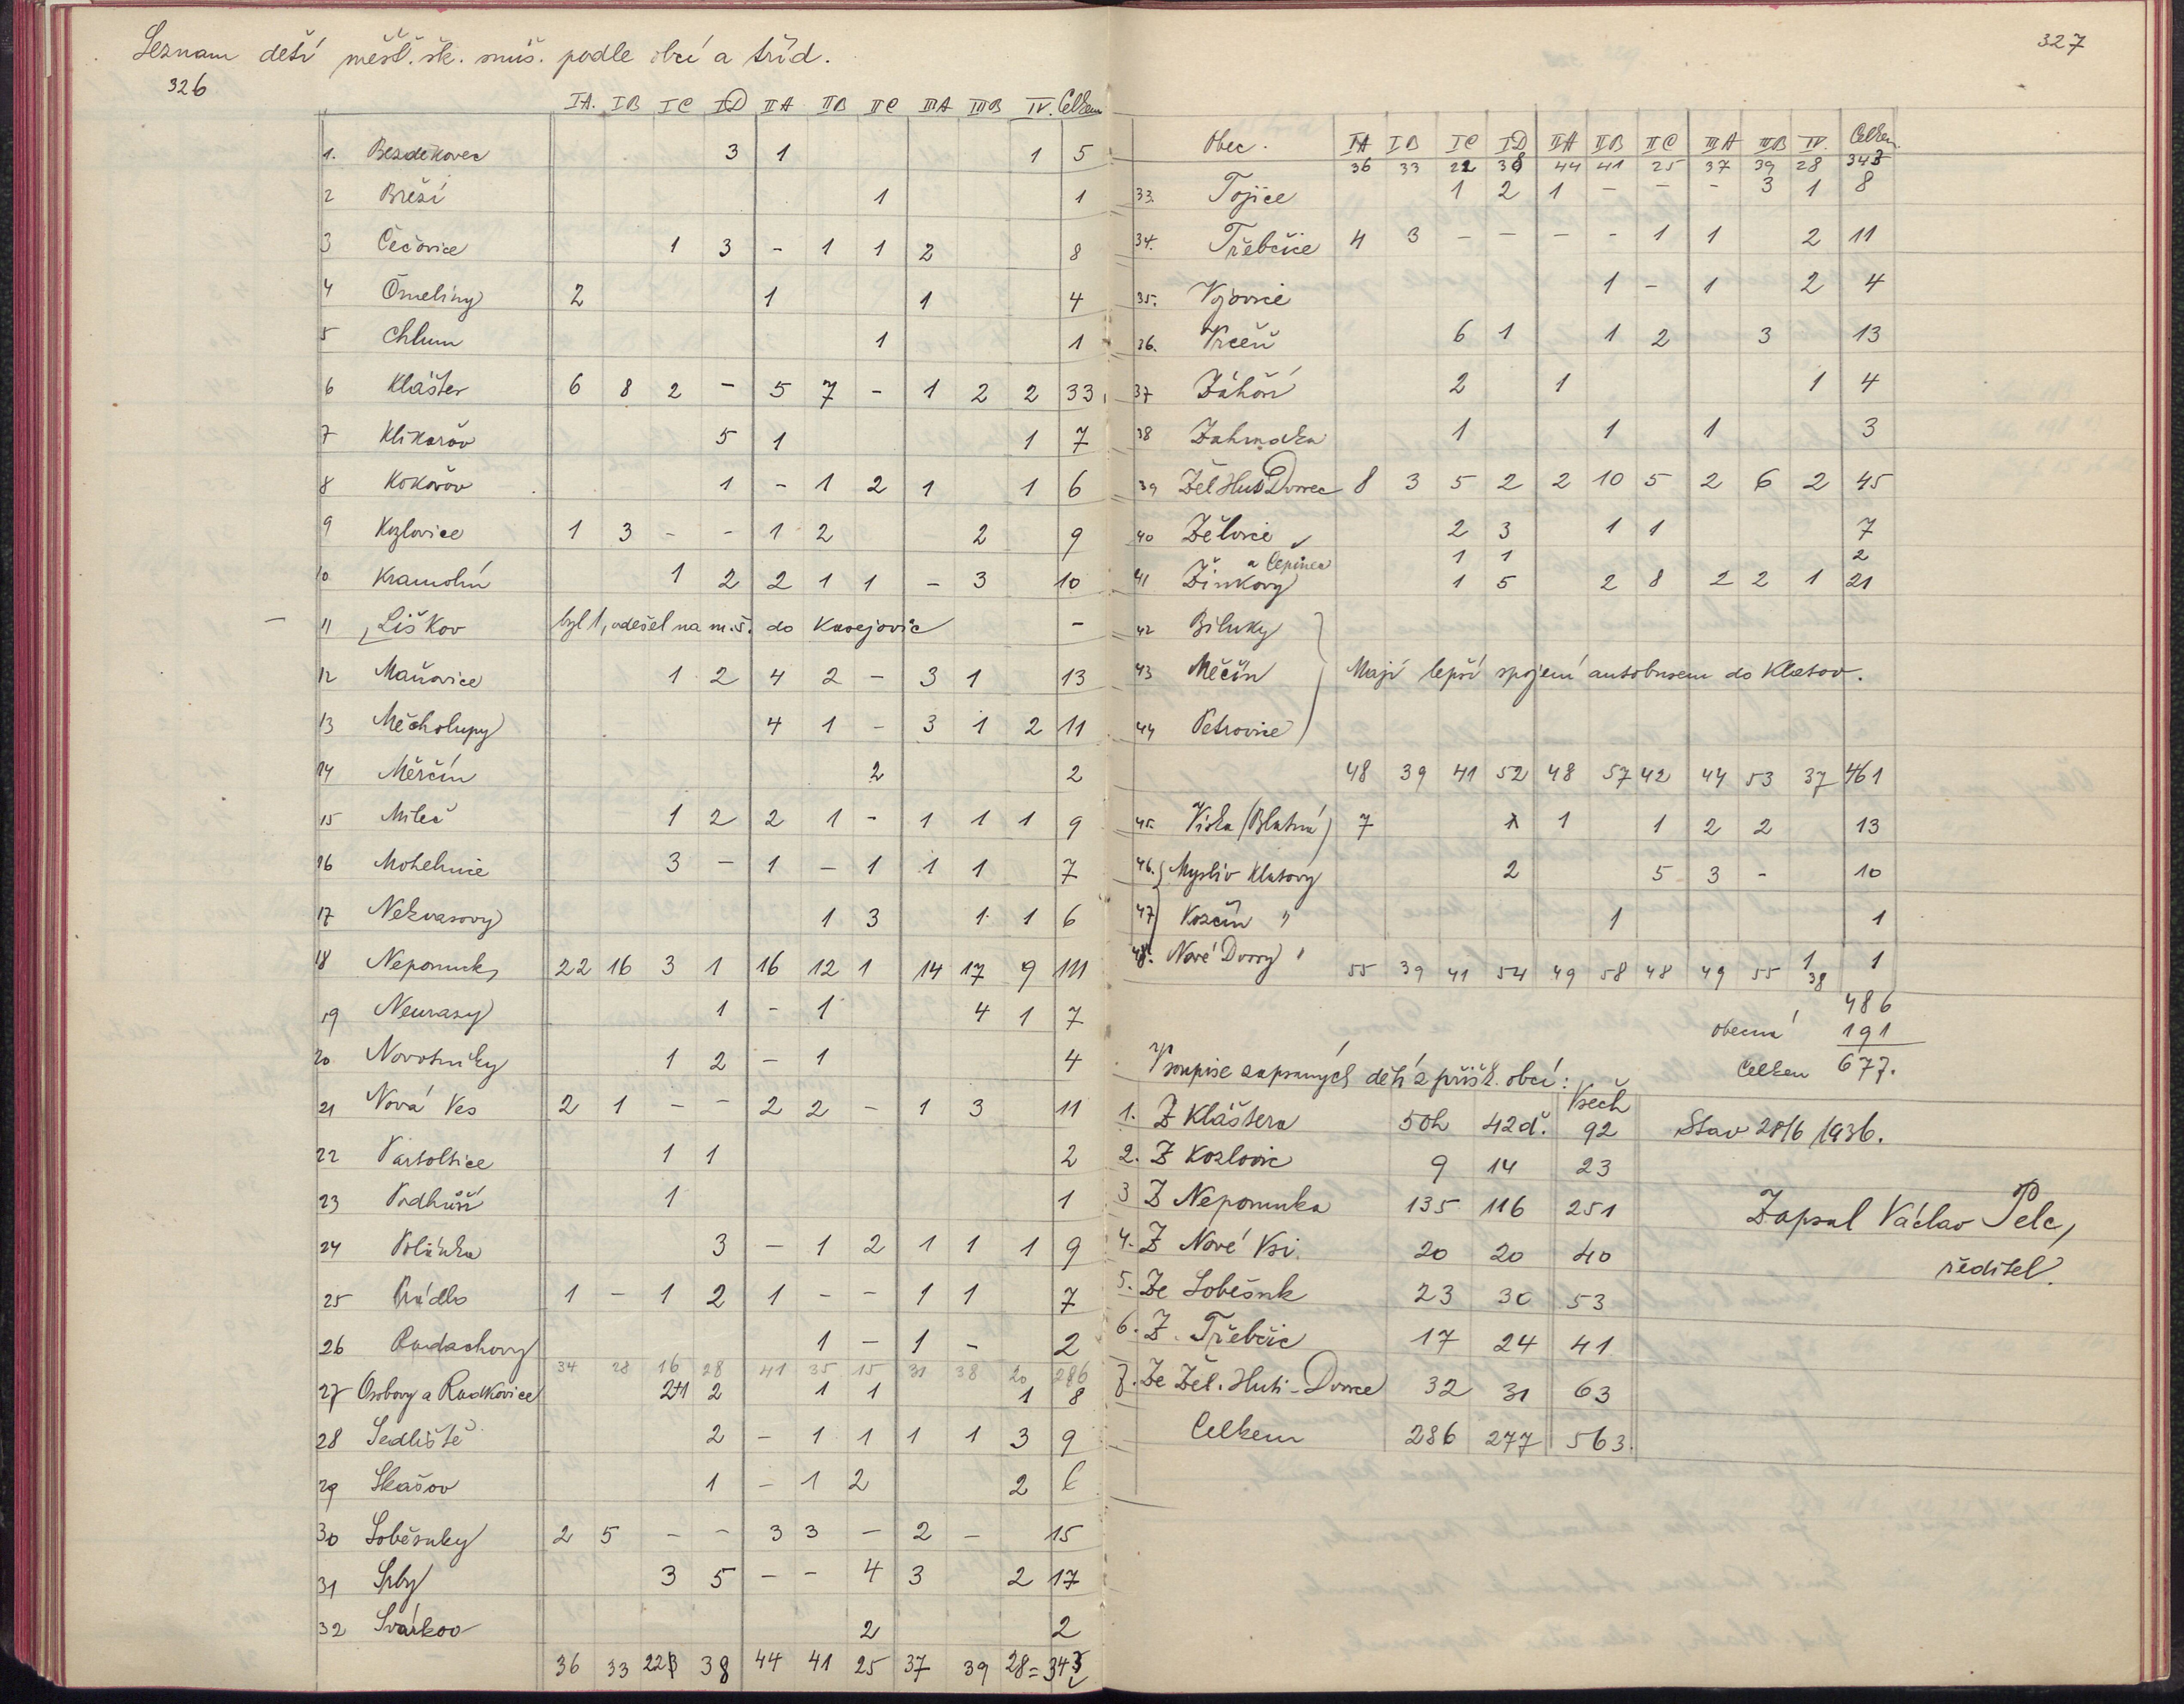 Seznam dětí měšť. šk. smíš. podle obcí a tříd.
326
IA. IB IC ID IIA IIB IIC IIIA IIIB IV. Celkem
1. Bezděkovec 3 1 1 5
2 Březí 1 1
3 Čečovice 1 3 - 1 1 2 8
4 Čmelíny 2 1 1 4
5 Chlum 1 1
6 Klášter 6 8 2 - 5 7 - 1 2 2 33
7 Klikařov 5 1 1 7
8 Kokořov 1 - 1 2 1 1 6
9 Kozlovice 1 3 - - 1 2 2 9
10 Kramolín 1 2 2 1 1 - 3 10
11 Liškov byl 1, odešel na m.š. do Kasejovic -
12 Maňovice 1 2 4 2 - 3 1 13
13 Měcholupy 4 1 - 3 1 2 11
14 Měrčín 2 2
15 Mileč 1 2 2 1 - 1 1 1 9
16 Mohelnice 3 - 1 - 1 1 1 7
17 Nekvasovy 1 3 1 1 6
18 Nepomuk 22 16 3 1 16 12 1 14 17 9 111
19 Neurazy 1 - 1 4 1 7
20 Novotníky 1 2 - 1 4
21 Nová Ves 2 1 - - 2 2 - 1 3 11
22 Partoltice 1 1 2
23 Podhůří 1 1
24 Polánka 3 - 1 2 1 1 1 9
25 Prádlo 1 - 1 2 1 - - 1 1 7
26 Radachovy 1 - 1 - 2
34 28 16 28 41 35 15 31 38 20 286
27 Osobovy a Radkovice 2+1 2 1 1 1 8
28 Sedliště 2 - 1 1 1 1 3 9
29 Skašov 1 - 1 2 2 6
30 Soběsuky 2 5 - - 3 3 - 2 - 15
31 Srby 3 5 - - 4 3 2 17
32 Svárkov 2 2
36 33 22 38 44 41 25 37 39 28 = 343
327
Obec. IA IB IC ID IIA IIB IIC IIIA IIIB IV. Celkem
36 33 22 38 44 41 25 37 39 28 343
33. Tojice 1 2 1 - - - 3 1 8
34. Třebčice 4 3 - - - - 1 1 2 11
35. Vojovice 1 - 1 2 4
36. Vrčeň 6 1 1 2 3 13
37 Záhoří 2 1 1 4
38 Zahrádka 1 1 1 3
39 Žel. Huť Dvorec 8 3 5 2 2 10 5 2 6 2 45
40 Želvice 2 3 1 1 7
a Čepinec 1 1 2
41 Žinkovy 1 5 2 8 2 2 1 21
42 Biluky
43 Měčín Mají lepší spojení autobusem do Klatov.
44 Petrovice
48 39 41 52 48 57 42 44 53 37 461
45. Víska (Blatná) 7 1 1 2 2 13
46. Myslív Klatovy 2 5 3 - 10
47 Kozčín " 1 1
48. Nové Dvory " 1 1
55 39 41 54 49 58 48 49 55 38
486
obecná 191
Celkem 677.
V soupise zapsaných dětí z přišk. obcí:
Všech
1. Z Kláštera 50h 42d. 92 Stav 28/6 1936.
2. Z Kozlovic 9 14 23
3 Z Nepomuka 135 116 251
Zapsal Václav Pelc,
4. Z Nové Vsi. 20 20 40
ředitel.
5. Ze Soběsuk 23 30 53
6. Z. Třebčic 17 24 41
7. Ze Žel. Huti - Dvorce 32 31 63
Celkem 286 277 563.